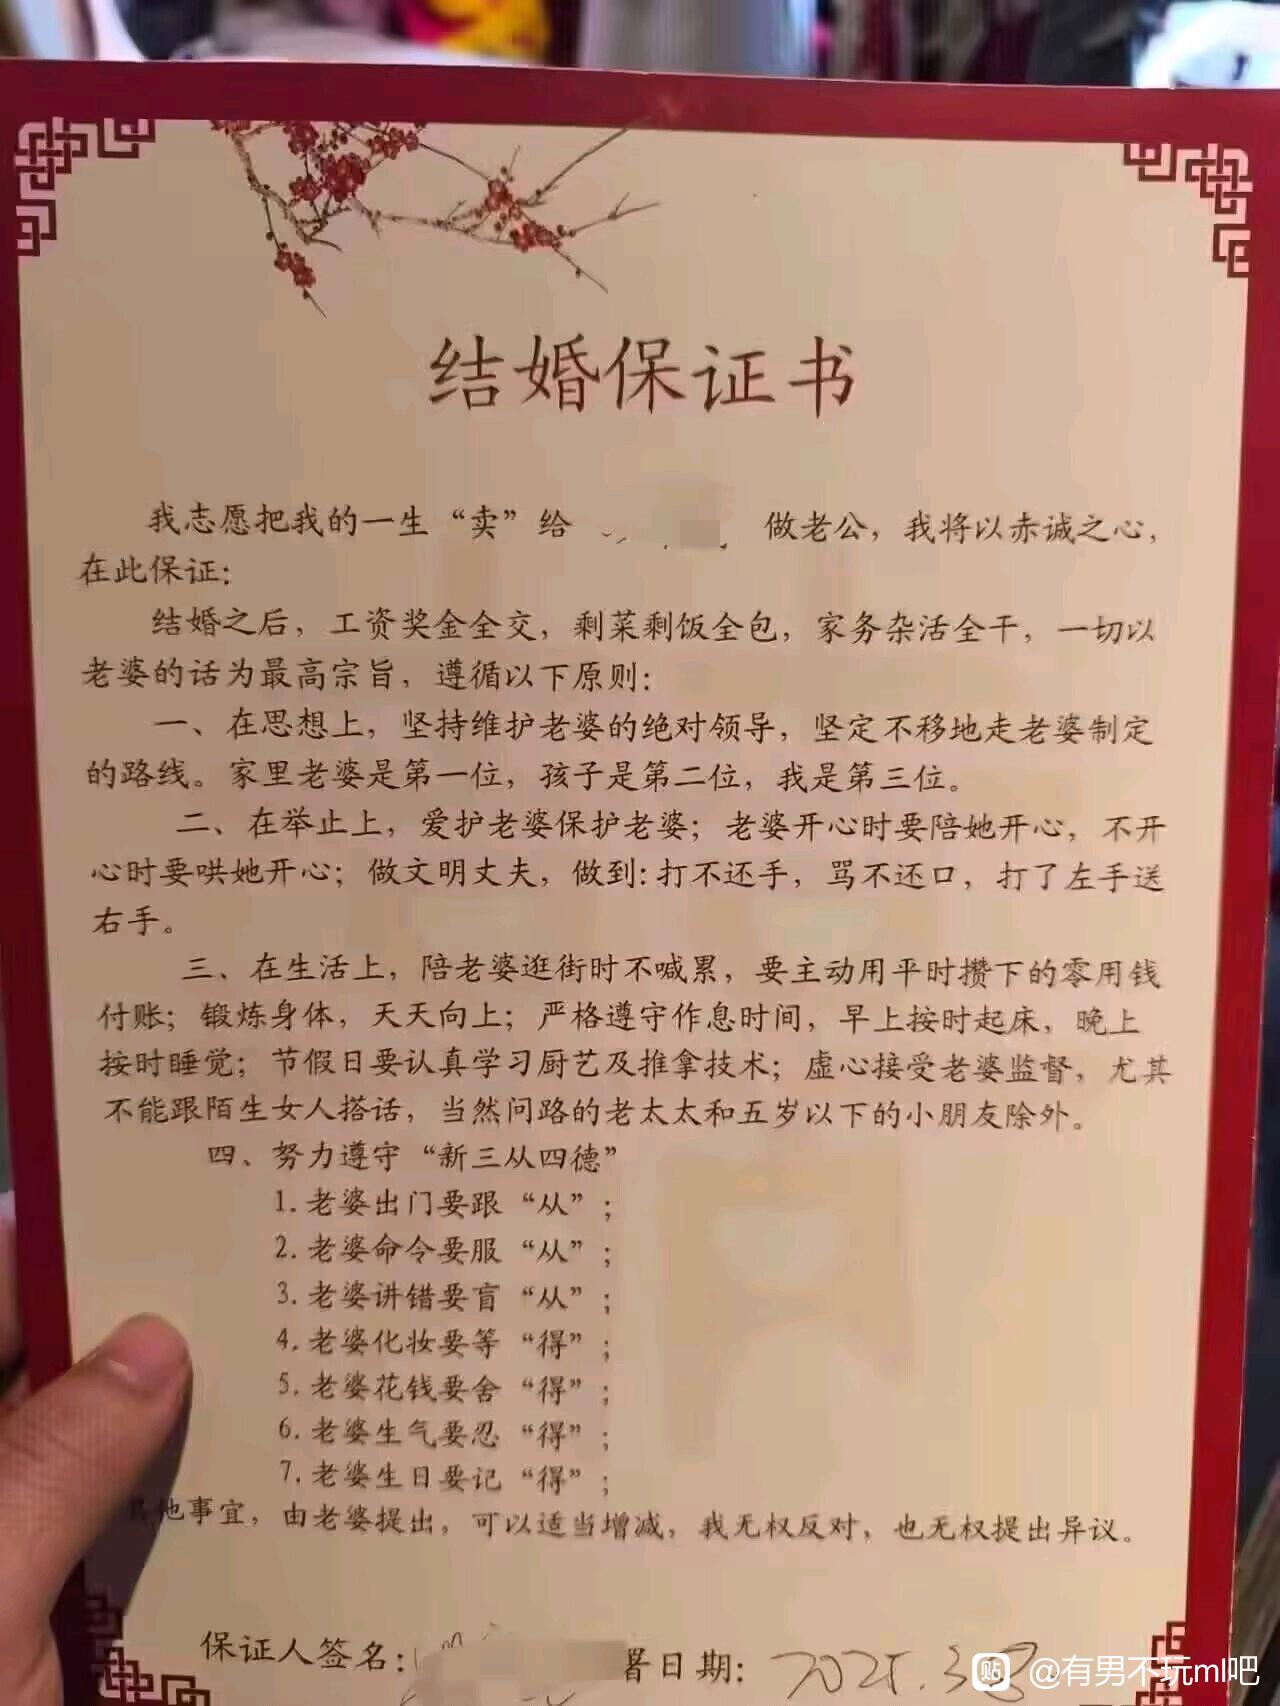 结婚保证书
我志愿把我的一生“卖”给 做老公，我将以赤诚之心，
在此保证：
结婚之后，工资奖金全交，剩菜剩饭全包，家务杂活全干，一切以
老婆的话为最高宗旨，遵循以下原则：
一、在思想上，坚持维护老婆的绝对领导，坚定不移地走老婆制定
的路线。家里老婆是第一位，孩子是第二位，我是第三位。
二、在举止上，爱护老婆保护老婆；老婆开心时要陪她开心，不开
心时要哄她开心；做文明丈夫，做到：打不还手，骂不还口，打了左手送
右手。
三、在生活上，陪老婆逛街时不喊累，要主动用平时攒下的零用钱
付账；锻炼身体，天天向上；严格遵守作息时间，早上按时起床，晚上
按时睡觉；节假日要认真学习厨艺及推拿技术；虚心接受老婆监督，尤其
不能跟陌生女人搭话，当然问路的老太太和五岁以下的小朋友除外。
四、努力遵守“新三从四德”
1.老婆出门要跟“从”；
2.老婆命令要服“从”；
3.老婆讲错要盲“从”；
4.老婆化妆要等“得”；
5.老婆花钱要舍“得”；
6.老婆生气要忍“得”；
7.老婆生日要记“得”；
其他事宜，由老婆提出，可以适当增减，我无权反对，也无权提出异议。
保证人签名： 署日期：
贴 @有男不玩ml吧